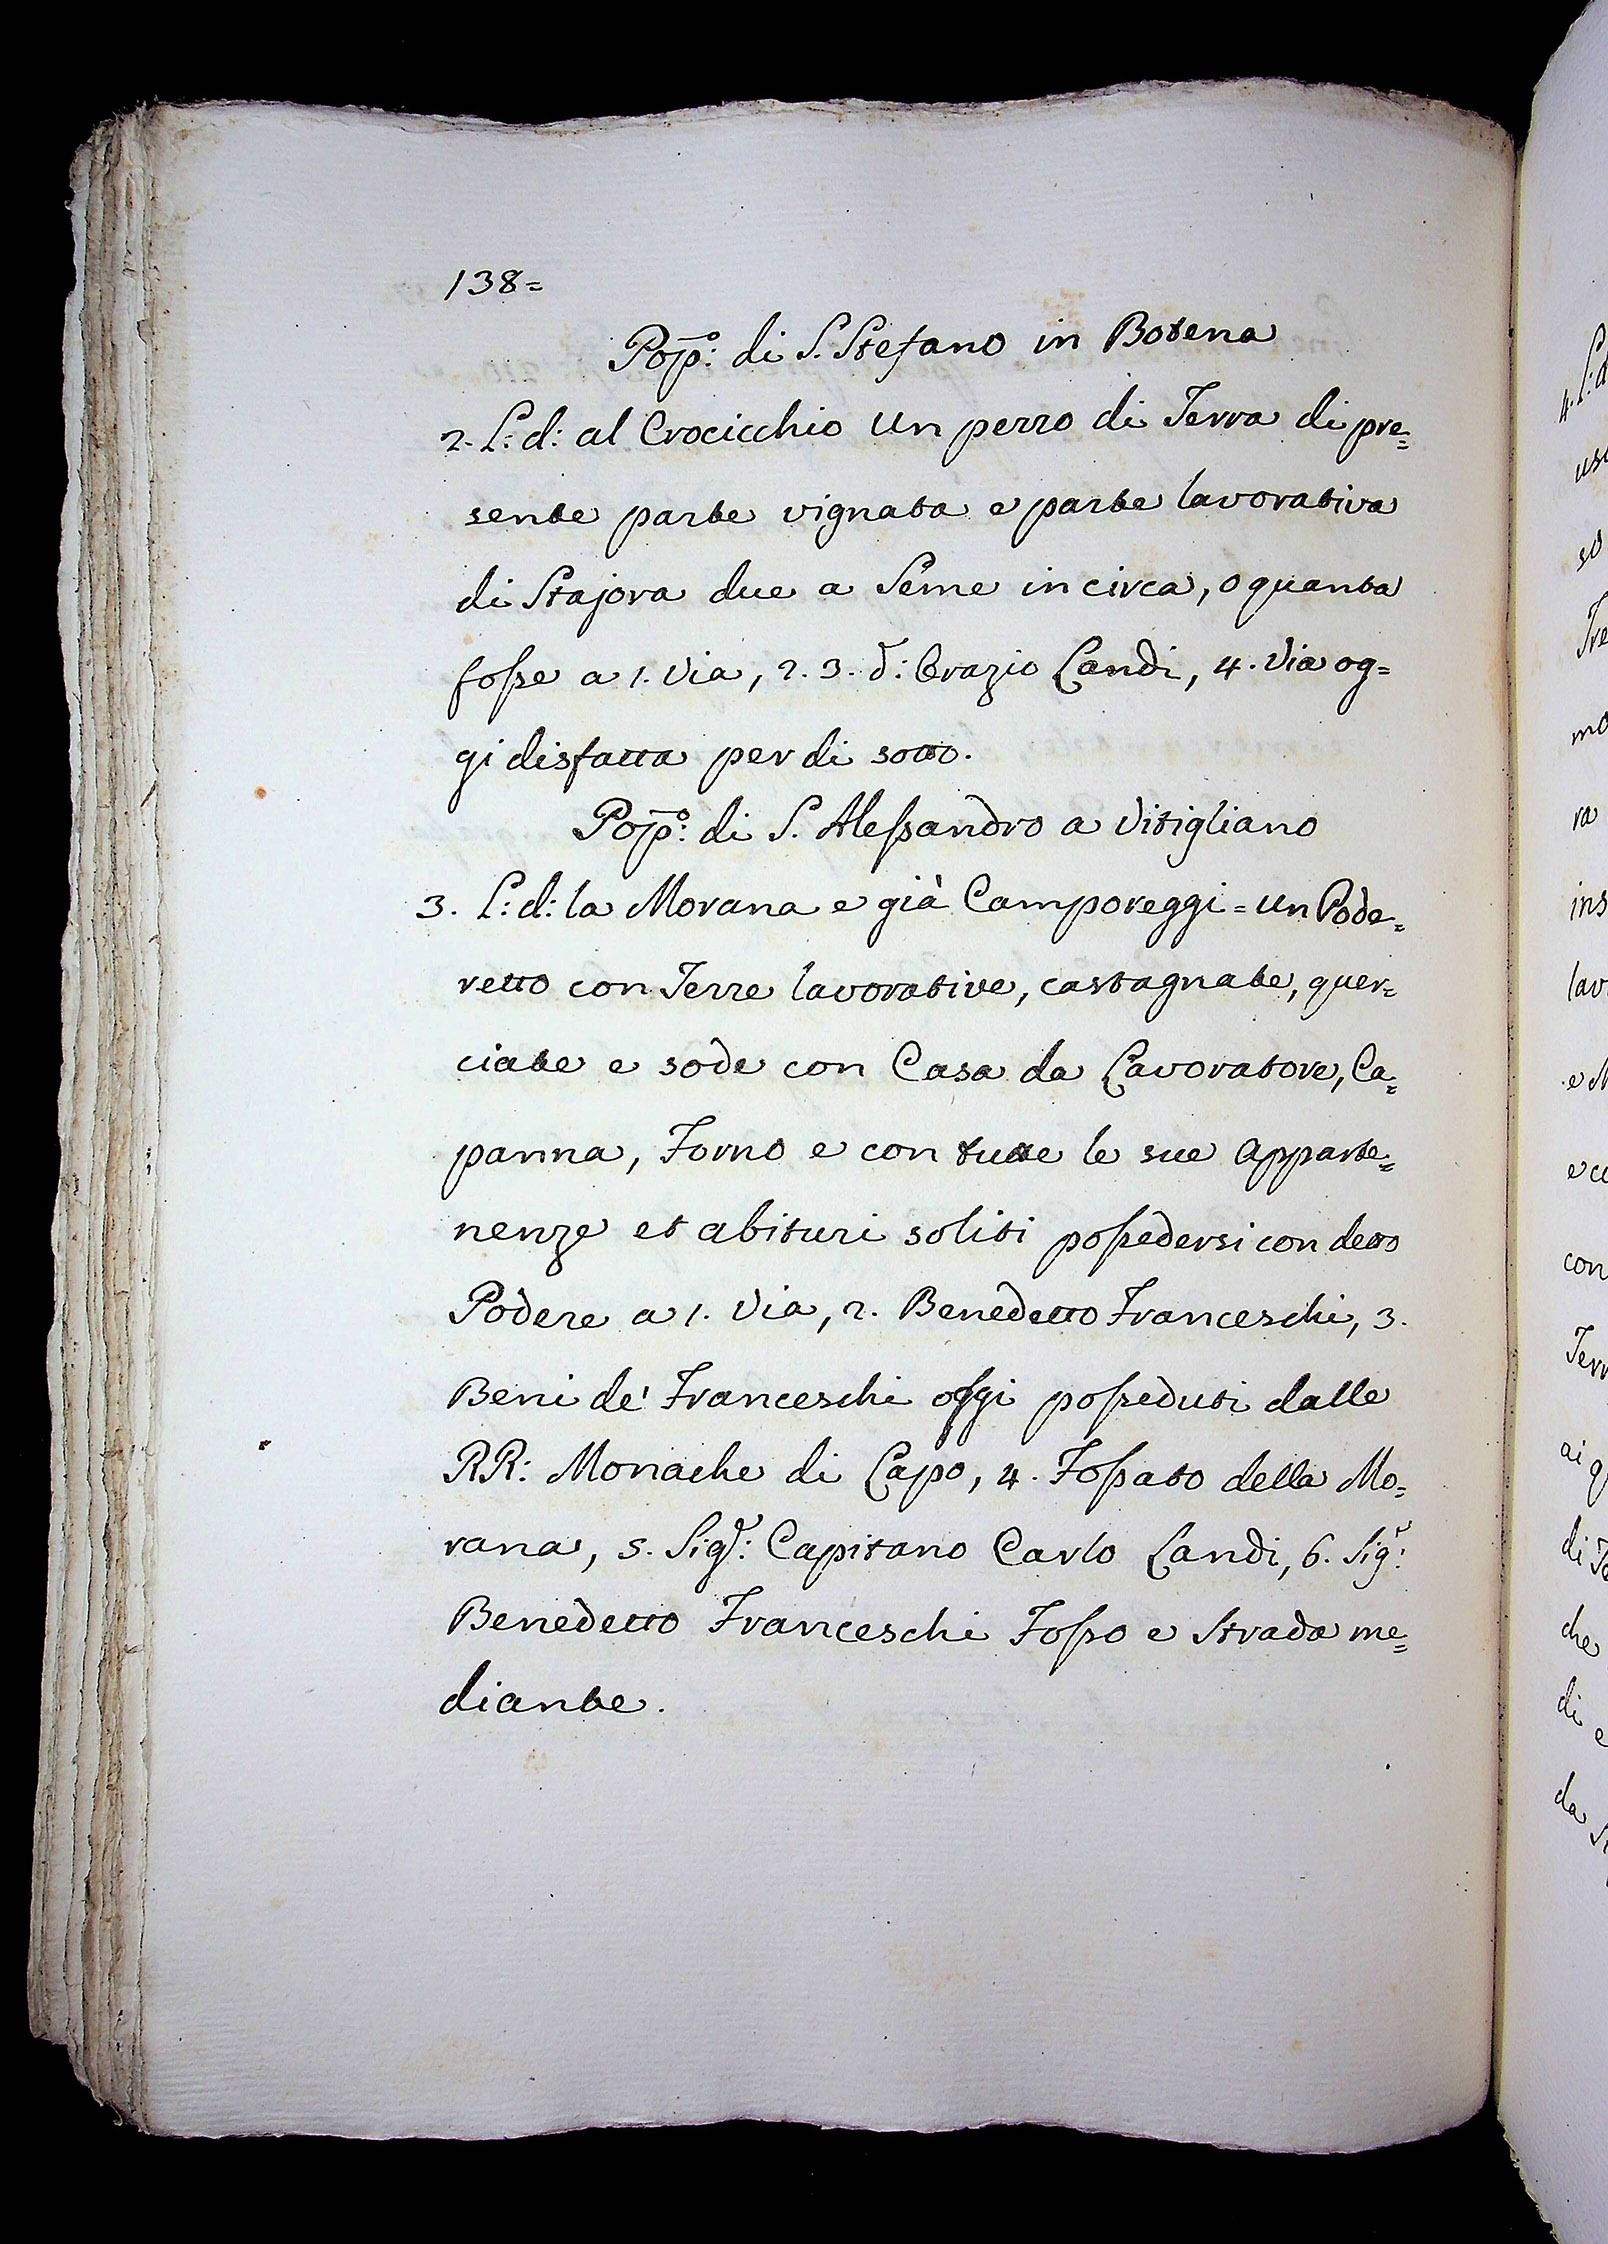 138=
Pop̄º: di S. Stefano in Botena
2. L: d: al Crocicchio un pezzo di Terra di pre=
sente parte vignata e parte lavorativa
di Stajora due a Seme in circa, o quanta
fosse a 1. Via, 2. 3. d: Orazio Landi, 4. Via og=
gi disfatta per di sotto.
Pop̄º: di S. Alessandro a Vitigliano
3. L: d: la Morana e già Camporeggi = un Pode=
retto con Terre lavorative, castagnate, quer=
ciate e sode con Casa da Lavoratore, Ca=
panna, Forno e con tutte le sue apparte=
nenze et abituri soliti possedersi con detto
Podere a 1. Via, 2. Benedetto Franceschi, 3.
Beni de' Franceschi oggi posseduti dalle
RR: Monache di Capo, 4. Fossato della Mo=
rana, 5. Sigʳ: Capitano Carlo Landi, 6. Sigʳ:
Benedetto Franceschi Fosso e Strada me=
diante.
4. L: d
ra
ins
lav
e M
con
Terr
che
di e
da